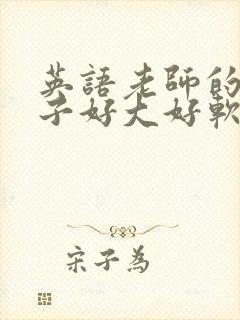 英語老師的
子好大好軟
宋子為